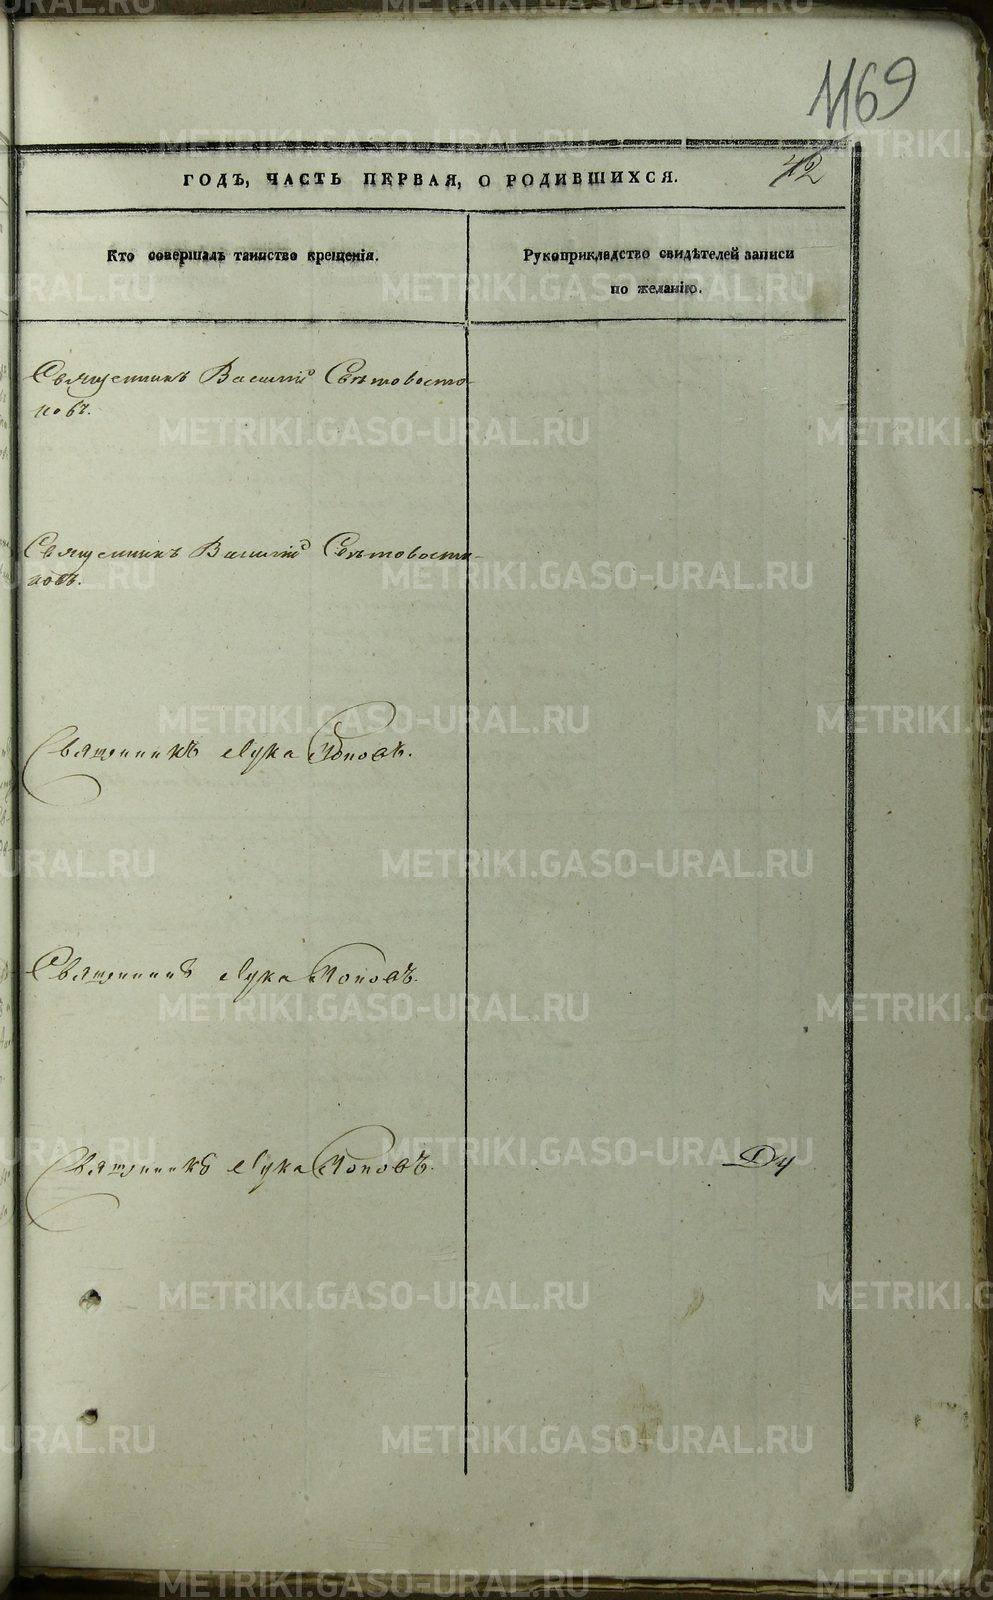 1169
42
ГОДЪ, ЧАСТЬ ПЕРВАЯ, О РОДИВШИХСЯ.
Кто совершалъ таинство крещенія.
Рукоприкладство свидѣтелей записи
по желанію.
Священникъ Василій Свѣтовосто-
ковъ.
Священникъ Василій Свѣтовосто-
ковъ.
Священникъ Лука Поповъ.
Священникъ Лука Поповъ.
Священникъ Лука Поповъ.
METRIKI.GASO-URAL.RU